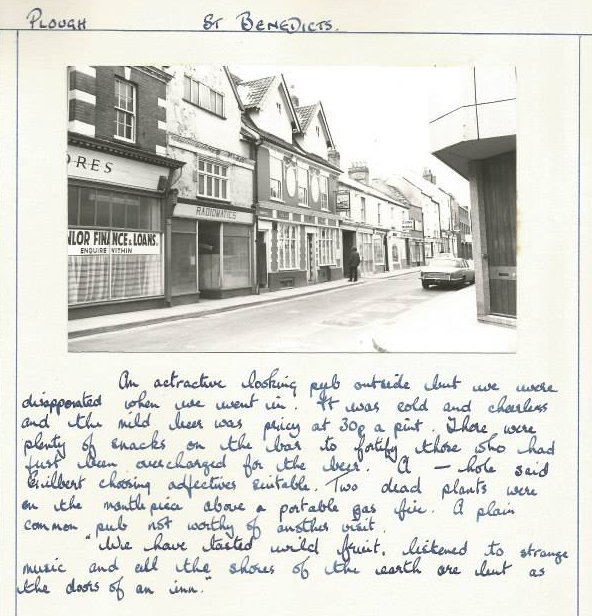 PLOUGH ST BENEDICTS.
ORES
NLOR FINANCE & LOANS.
ENQUIRE WITHIN
RADIOMATICS
An actractive looking pub outside but we were
disapporated when we went in. It was cold and cheerless
and the mild beer was pricy at 30p a pint. There were
plenty of snacks on the bar to fortify those who had
just been overcharged for the beer. "A — hole said
Guilbert choosing adjectives suitable. Two dead plants were
on the mantlepiece above a portable gas fire. A plain
common pub not worthy of another visit.
"We have tasted wild fruit, listened to strange
music and all the shores of the earth are but as
the doors of an inn."